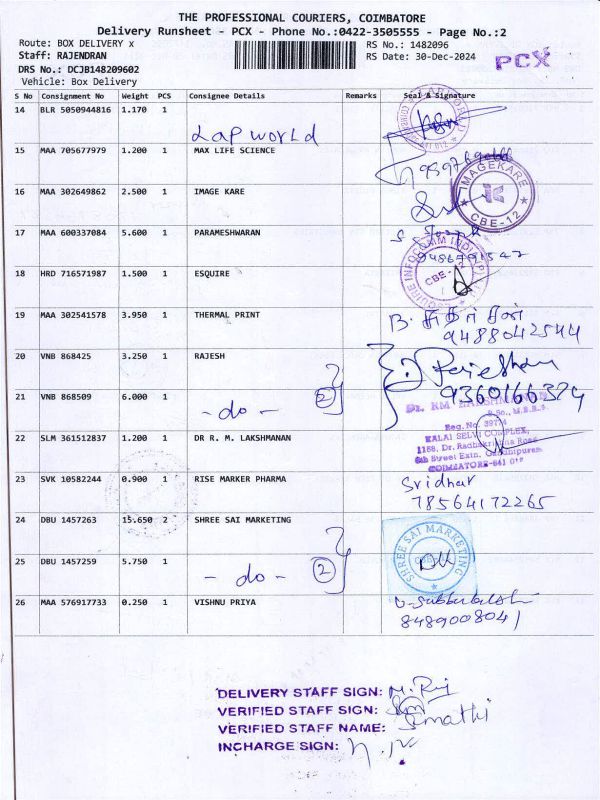 THE PROFESSIONAL COURIERS, COIMBATORE
Delivery Runsheet - PCX - Phone No.:0422-3505555 - Page No.:2
Route: BOX DELIVERY x RS No.: 1482096
Staff: RAJENDRAN RS Date: 30-Dec-2024 PCX
DRS No.: DCJB148209602
Vehicle: Box Delivery
S No Consignment No Weight PCS Consignee Details Remarks Seal & Signature
14 BLR 5050944816 1.170 1
Lap World
15 MAA 705677979 1.200 1 MAX LIFE SCIENCE
16 MAA 302649862 2.500 1 IMAGE KARE
IMAGEKARE
CBE-12
17 MAA 600337084 5.600 1 PARAMESHWARAN
18 HRD 716571987 1.500 1 ESQUIRE
ESQUIRE INFOCOMM INDIA (P)
CBE-12
19 MAA 302541578 3.950 1 THERMAL PRINT
9488042544
20 VNB 868425 3.250 1 RAJESH
21 VNB 868509 6.000 1
- do - 2
9360166379
22 SLM 361512837 1.200 1 DR R. M. LAKSHMANAN
B.Sc., M.B.B.S.
KALAI SELVI COMPLEX,
1168, Dr. Radhakrishna Road
6th Street Extn. Gandhipuram
COIMBATORE-641 012
23 SVK 10582244 0.900 1 RISE MARKER PHARMA Sridhar
78564172265
24 DBU 1457263 15.650 2 SHREE SAI MARKETING
SHREE SAI MARKETING
25 DBU 1457259 5.750 1
- do - 2
26 MAA 576917733 0.250 1 VISHNU PRIYA
8489008041
DELIVERY STAFF SIGN: M. Raj
VERIFIED STAFF SIGN:
VERIFIED STAFF NAME: Sumathi
INCHARGE SIGN: